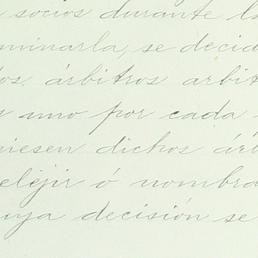 socios durante l
minarla, se decid
os árbitros arbit
s uno por cada
niesen dichos ár
elejir ó nombra
uya decisión se